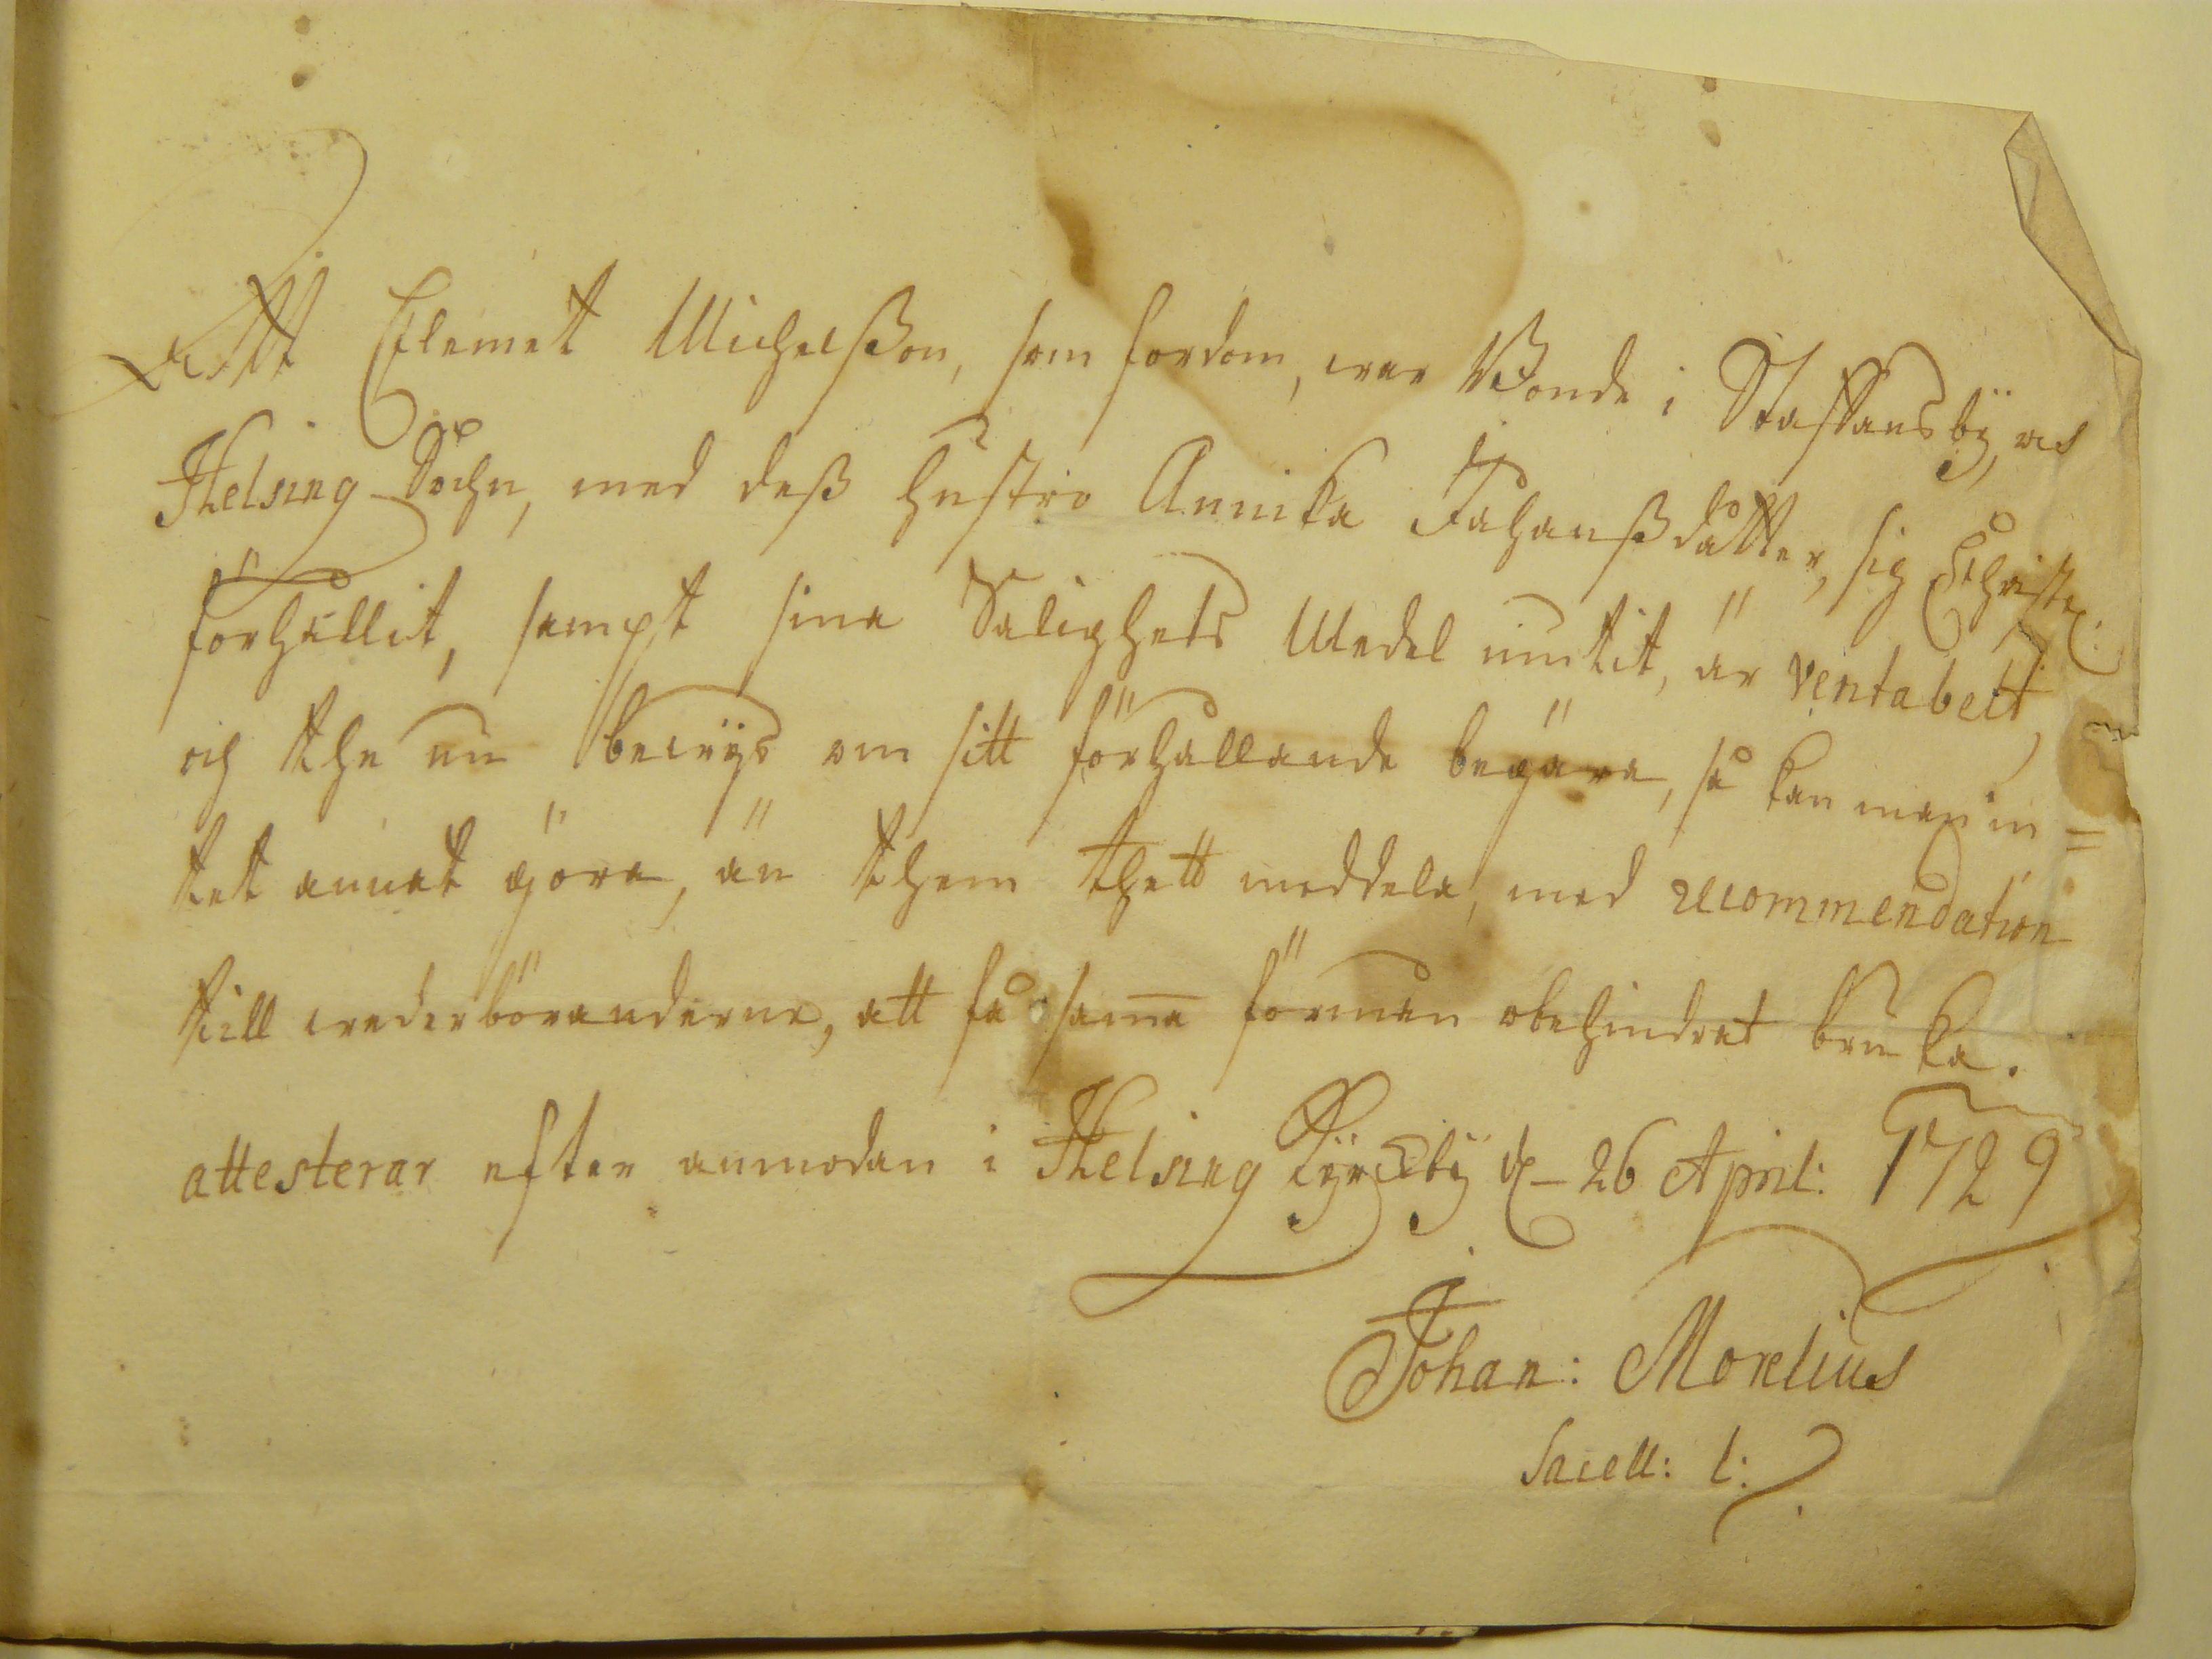 Att Clemet Michelsson, som fordom, war Bonde i Staffansby, as
Helsing Sochn, med dess hustro Annika Johanssdåtter, sig Christel:
förhållit, sampt sina Salighets Medel nutit, är ventabelt,
och the nu bewijs om sitt förhållande begära, så kan man in=
tet annat göra, än them thett meddela, med recommendation
till wederböranderne, att få samma förmån obehindrat bruka.
attesterar efter anmodan i Helsing Kyrckby d. 26 April: 1729
Johan: Morelius
Sacell: l: